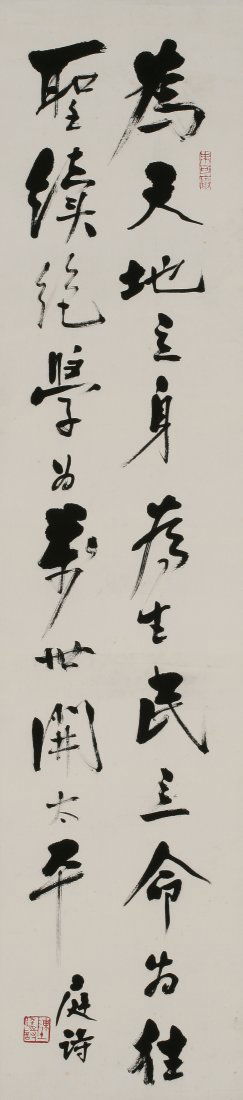 為天地立身為生民立命為往
聖續絕學為萬世開太平
庭詩